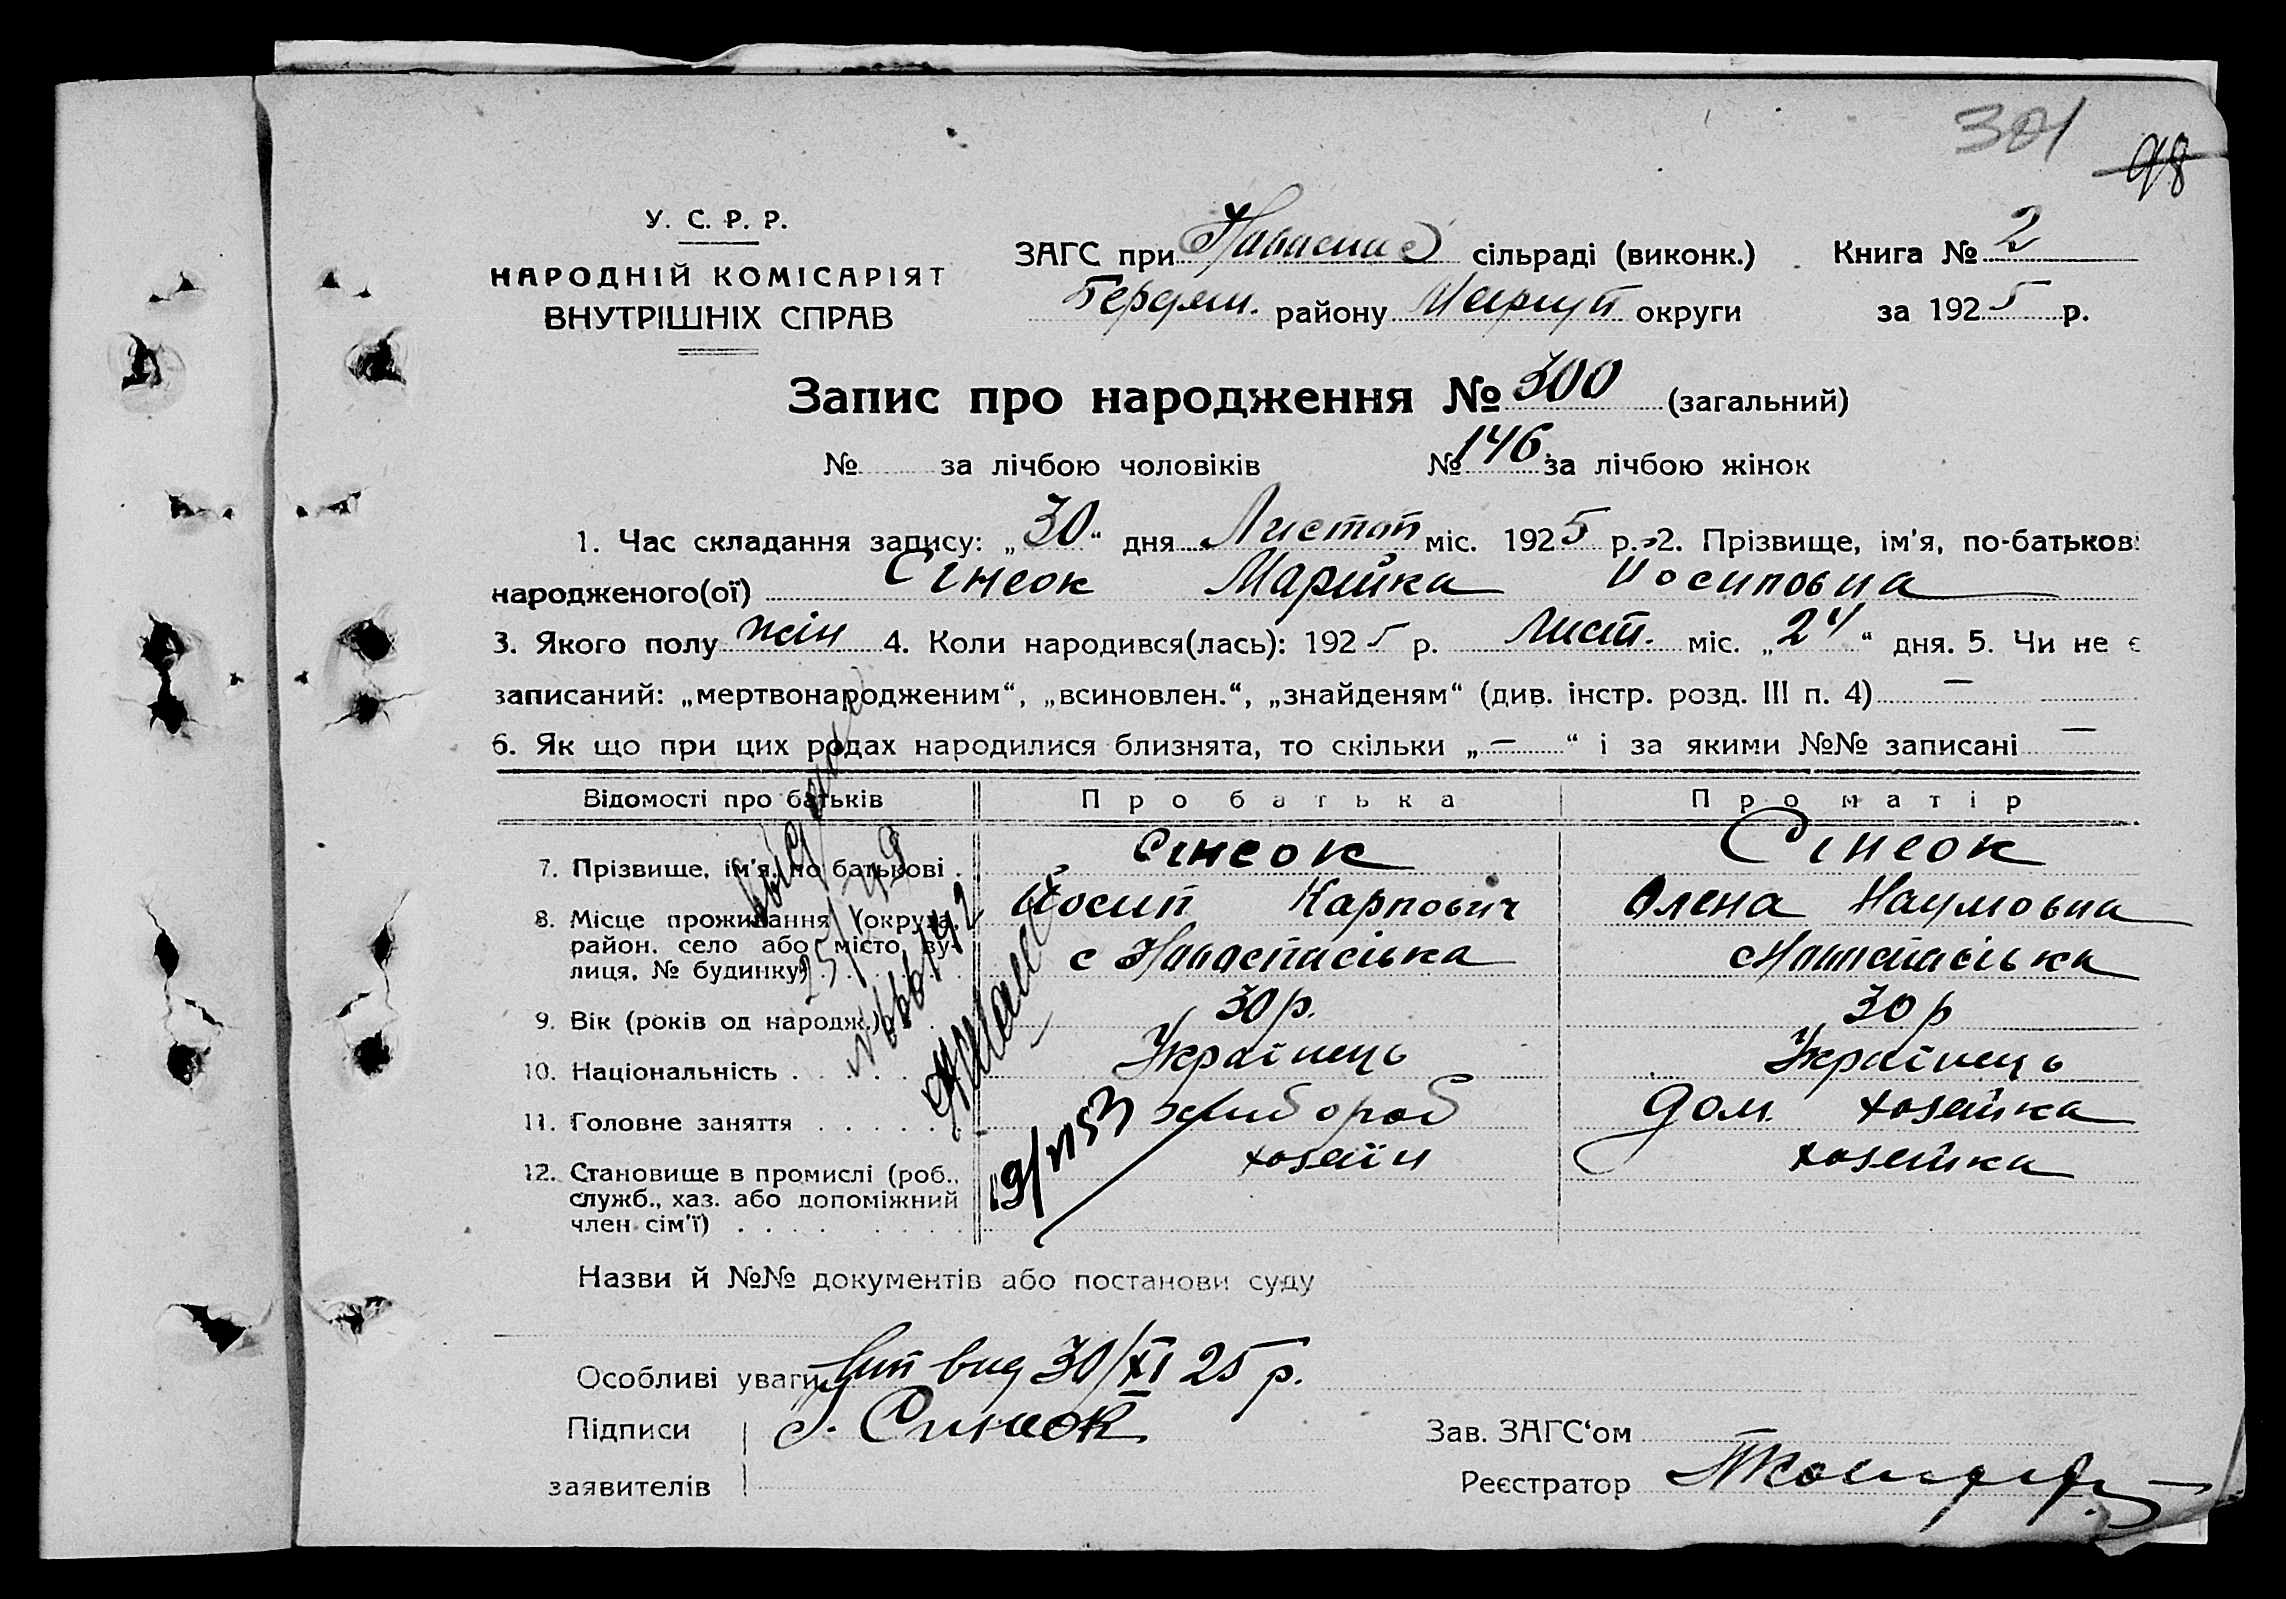 301
98
У. С. Р. Р.
НАРОДНІЙ КОМІСАРІЯТ
ВНУТРІШНІХ СПРАВ
ЗАГС при сільраді (виконк.) Книга № 2
Бердян. району Маріуп округи за 1925 р.
Запис про народження № 300 (загальний)
№ за лічбою чоловіків № 146 за лічбою жінок
1. Час складання запису: „30“ дня Листоп міс. 1925 р. 2. Прізвище, ім'я, по-батькові
народженого(ої) Сінеок Марійка Йосиповна
3. Якого полу жін 4. Коли народився(лась): 1925 р. Лист. міс. „24“ дня. 5. Чи не є
записаний: „мертвонародженим“, „всиновлен.“, „знайденям“ (див. інстр. розд. III п. 4) —
6. Як що при цих родах народилися близнята, то скільки „—“ і за якими №№ записані —
Відомості про батьків Про батька Про матір
7. Прізвище, ім'я, по батькові . Сінеок Сінеок
Йосип Карпович Олена Наумовна
8. Місце проживання (округа, район, село або місто, ву-
лиця, № будинку) с Новоспасівка с Новоспасівка
9. Вік (років од народж.) 30 р. 30 р
10. Національність Українець Українець
11. Головне заняття Хлибороб Дом. хозяйка
12. Становище в промислі (роб., хозяїн хозяйка
служб., хаз. або допоміжний
член сім'ї)
19/VI 53
Назви й №№ документів або постанови суду
Особливі уваги Вип вид 30/XI 25 р.
Підписи Синеок
заявителів
Зав. ЗАГС‘ом
Реєстратор